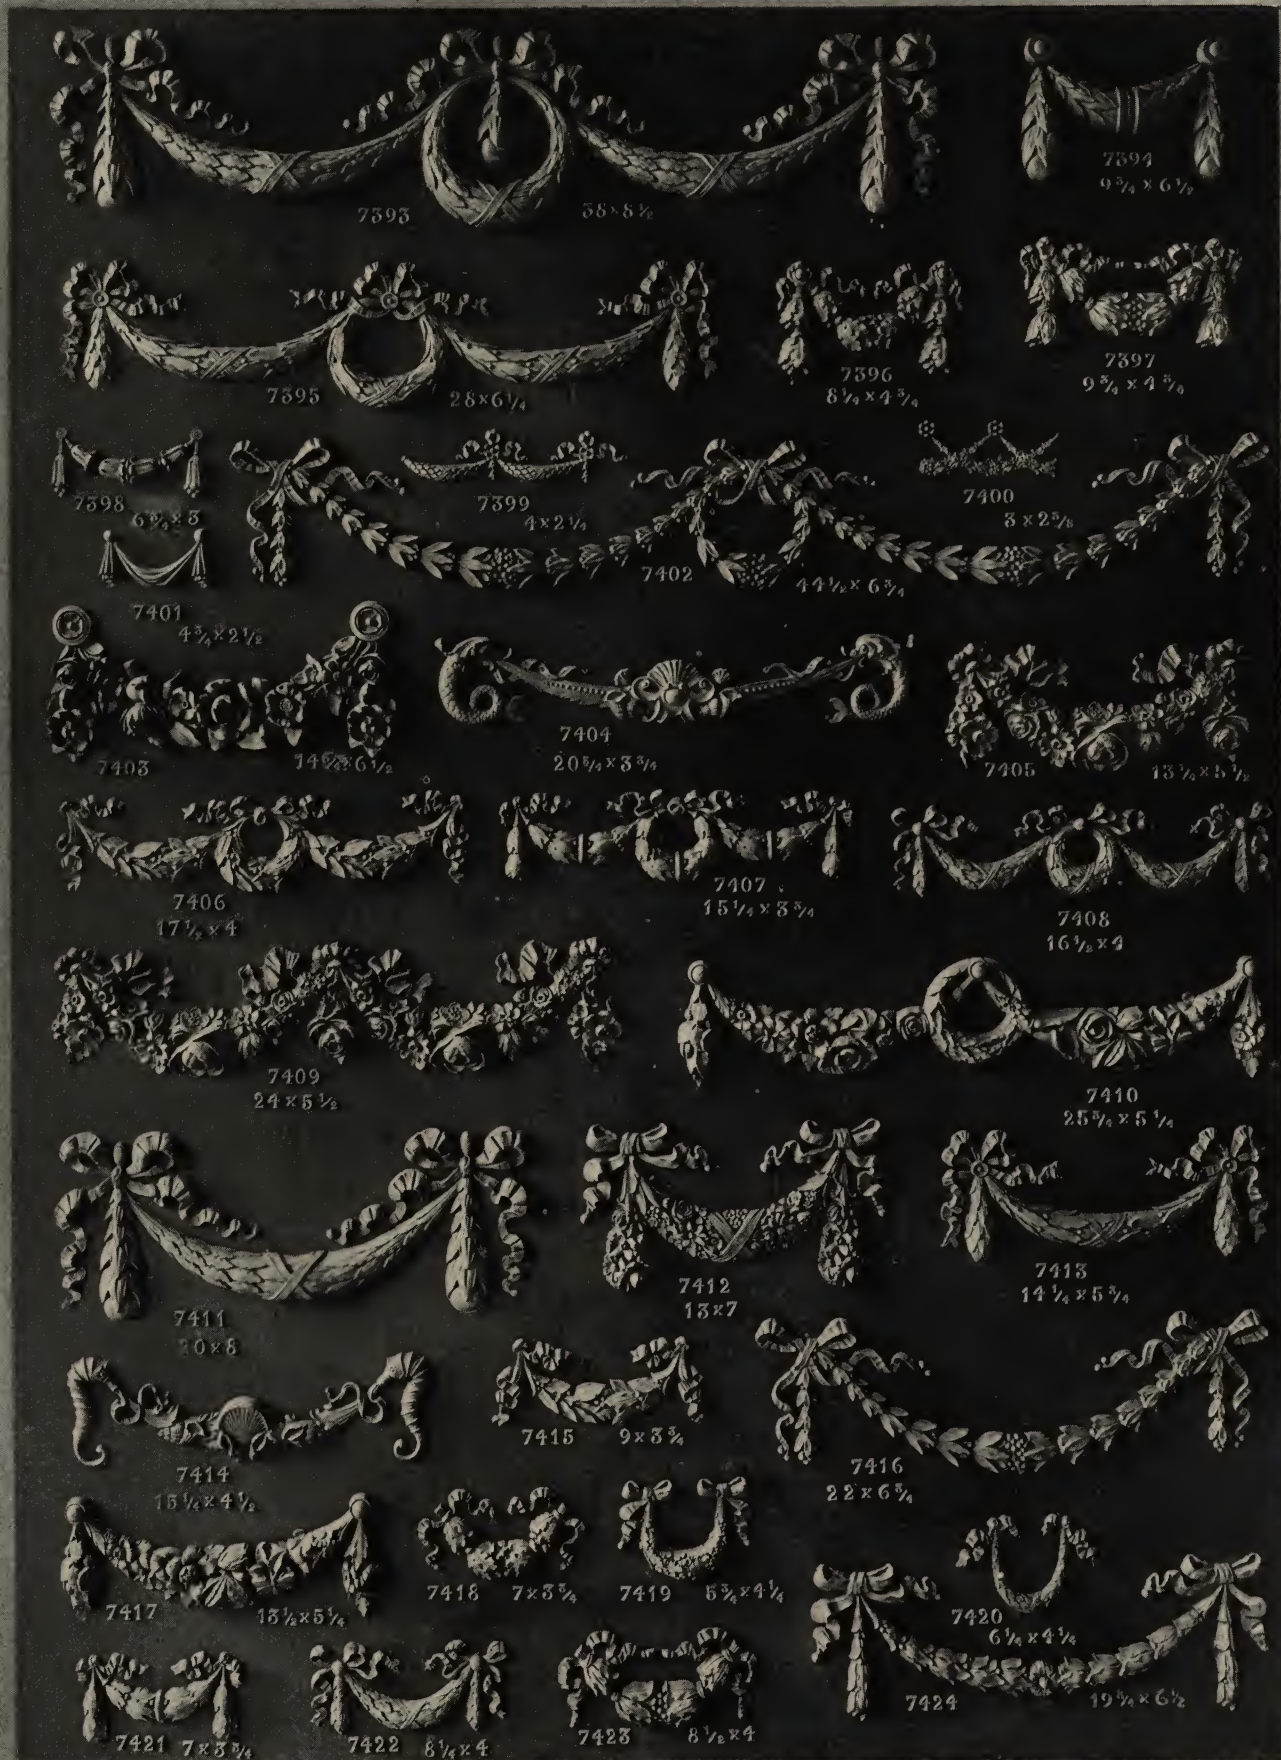 7393
38×8½
7394
9¾×6½
7395
28×6¼
7396
8¼×4¾
7397
9¾×4¾
7398
6¾×3
7399
4×2¼
7400
3×2⅝
7401
4¾×2½
7402
44½×6¾
7403
14¾×6½
7404
20¾×3¾
7405
13¼×5½
7406
17½×4
7407
15¼×3¾
7408
16½×4
7409
24×5½
7410
25¾×5¼
7411
20×8
7412
13×7
7413
14¼×5¾
7414
15¼×4½
7415
9×3¾
7416
22×6¾
7417
13½×5¼
7418
7×3¾
7419
5¾×4¼
7420
6¼×4¼
7421
7×3¾
7422
8¼×4
7423
8½×4
7424
19¾×6½